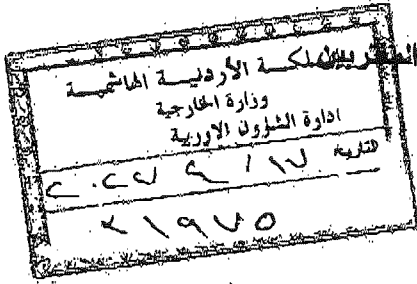 المملكة الأردنية الهاشمية
وزارة الخارجية
ادارة الشؤون الاوربية
التاريخ ١٧ /
٢١٩٧٥